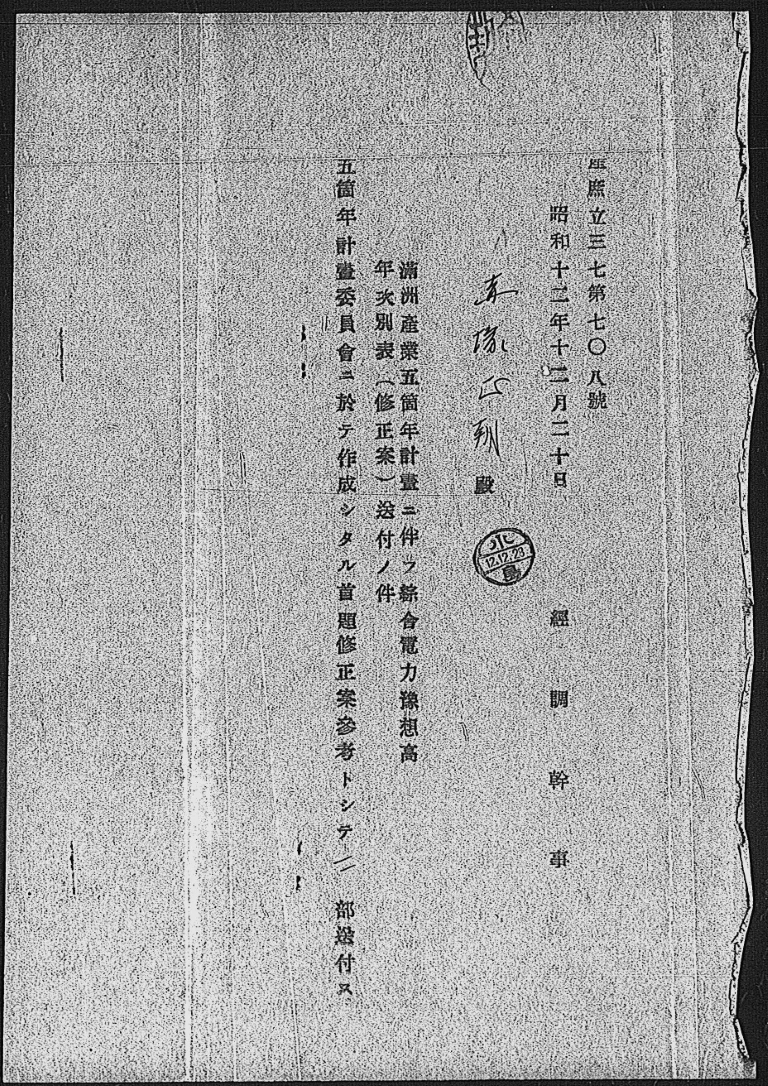 產庶立三七第七〇八號
昭和十二年十二月二十日
經調幹事
殿
水島
12.12.23
滿洲產業五箇年計畫ニ伴フ綜合電力豫想高
年次別表（修正案）送付ノ件
五箇年計畫委員會ニ於テ作成シタル首題修正案參考トシテ二部送付ス